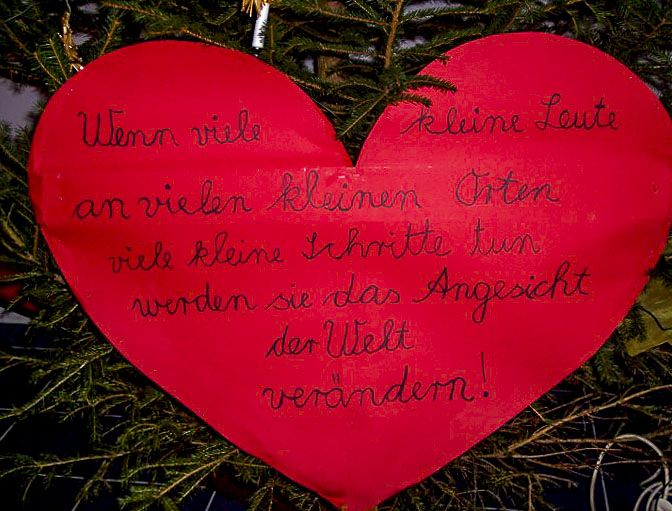 Wenn viele kleine Leute
an vielen kleinen Orten
viele kleine Schritte tun
werden sie das Angesicht
der Welt
verändern!